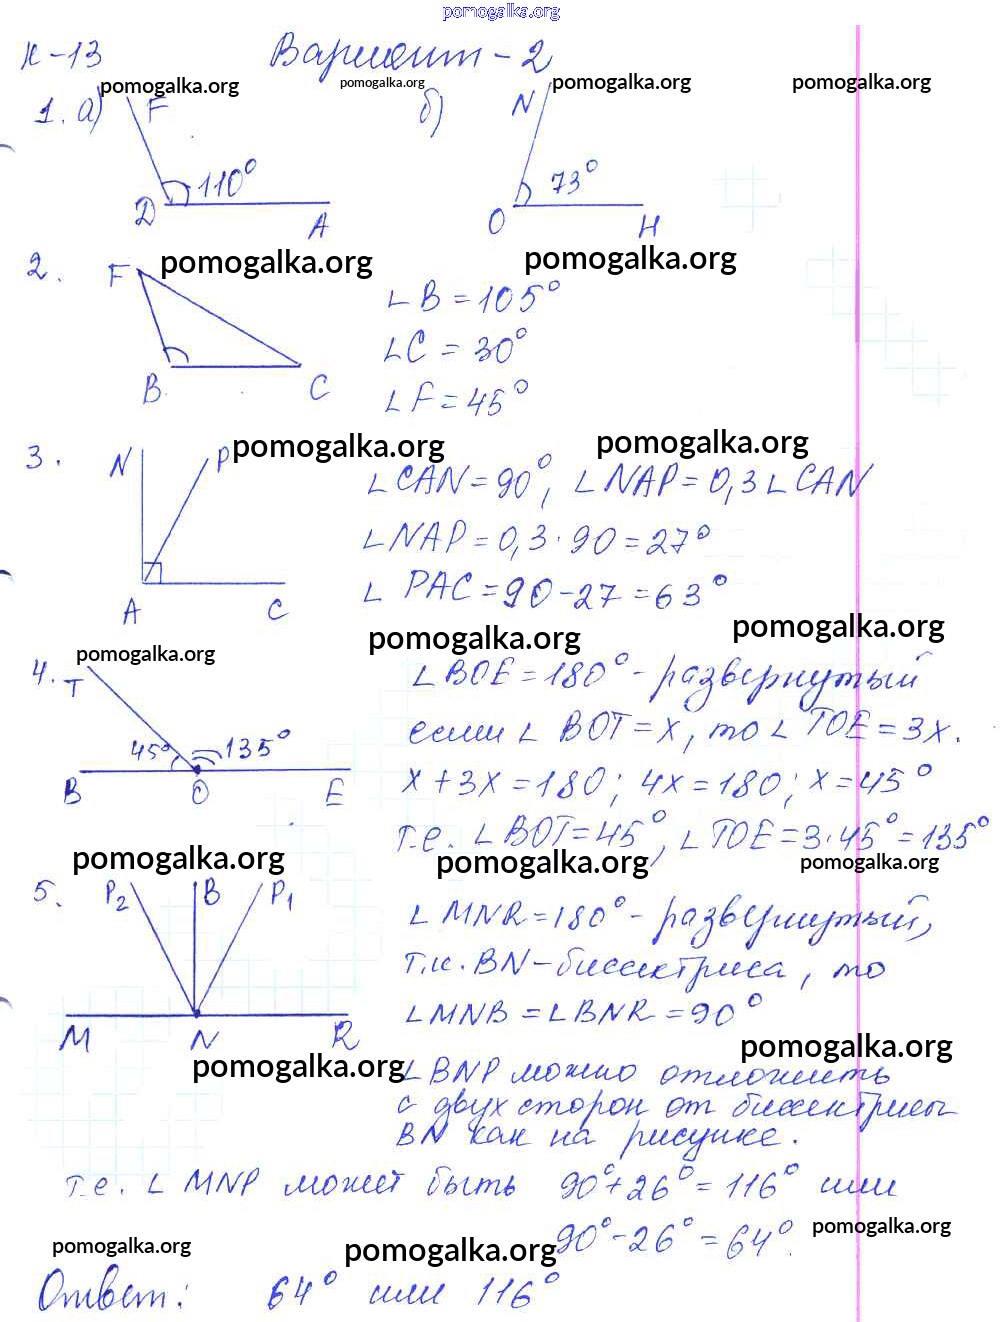 pomogalka.org
К-13 Вариант-2
pomogalka.org pomogalka.org pomogalka.org pomogalka.org
1. а) F б) N
110° 73°
D A O H
pomogalka.org pomogalka.org
2. F ∠B = 105°
∠C = 30°
B C ∠F = 45°
pomogalka.org pomogalka.org
3. N P ∠CAN = 90°, ∠NAP = 0,3 ∠CAN
∠NAP = 0,3 · 90 = 27°
A C ∠ PAC = 90 - 27 = 63°
pomogalka.org pomogalka.org pomogalka.org
4. T ∠BOE = 180° - развернутый
45° 135° если ∠ BOT = x, то ∠ TOE = 3x.
B O E x + 3x = 180; 4x = 180; x = 45°
т.е. ∠BOT = 45°, ∠TOE = 3·45° = 135°
pomogalka.org pomogalka.org pomogalka.org
5. P2 B P1 ∠ MNR = 180° - развернутый,
т.к. BN - биссектриса, то
M N R ∠MNB = ∠BNR = 90°
pomogalka.org pomogalka.org
∠BNP можно отложить
с двух сторон от биссектрисы
BN как на рисунке.
т.е. ∠ MNP может быть 90° + 26° = 116° или
90° - 26° = 64°.
pomogalka.org pomogalka.org pomogalka.org
Ответ: 64° или 116°